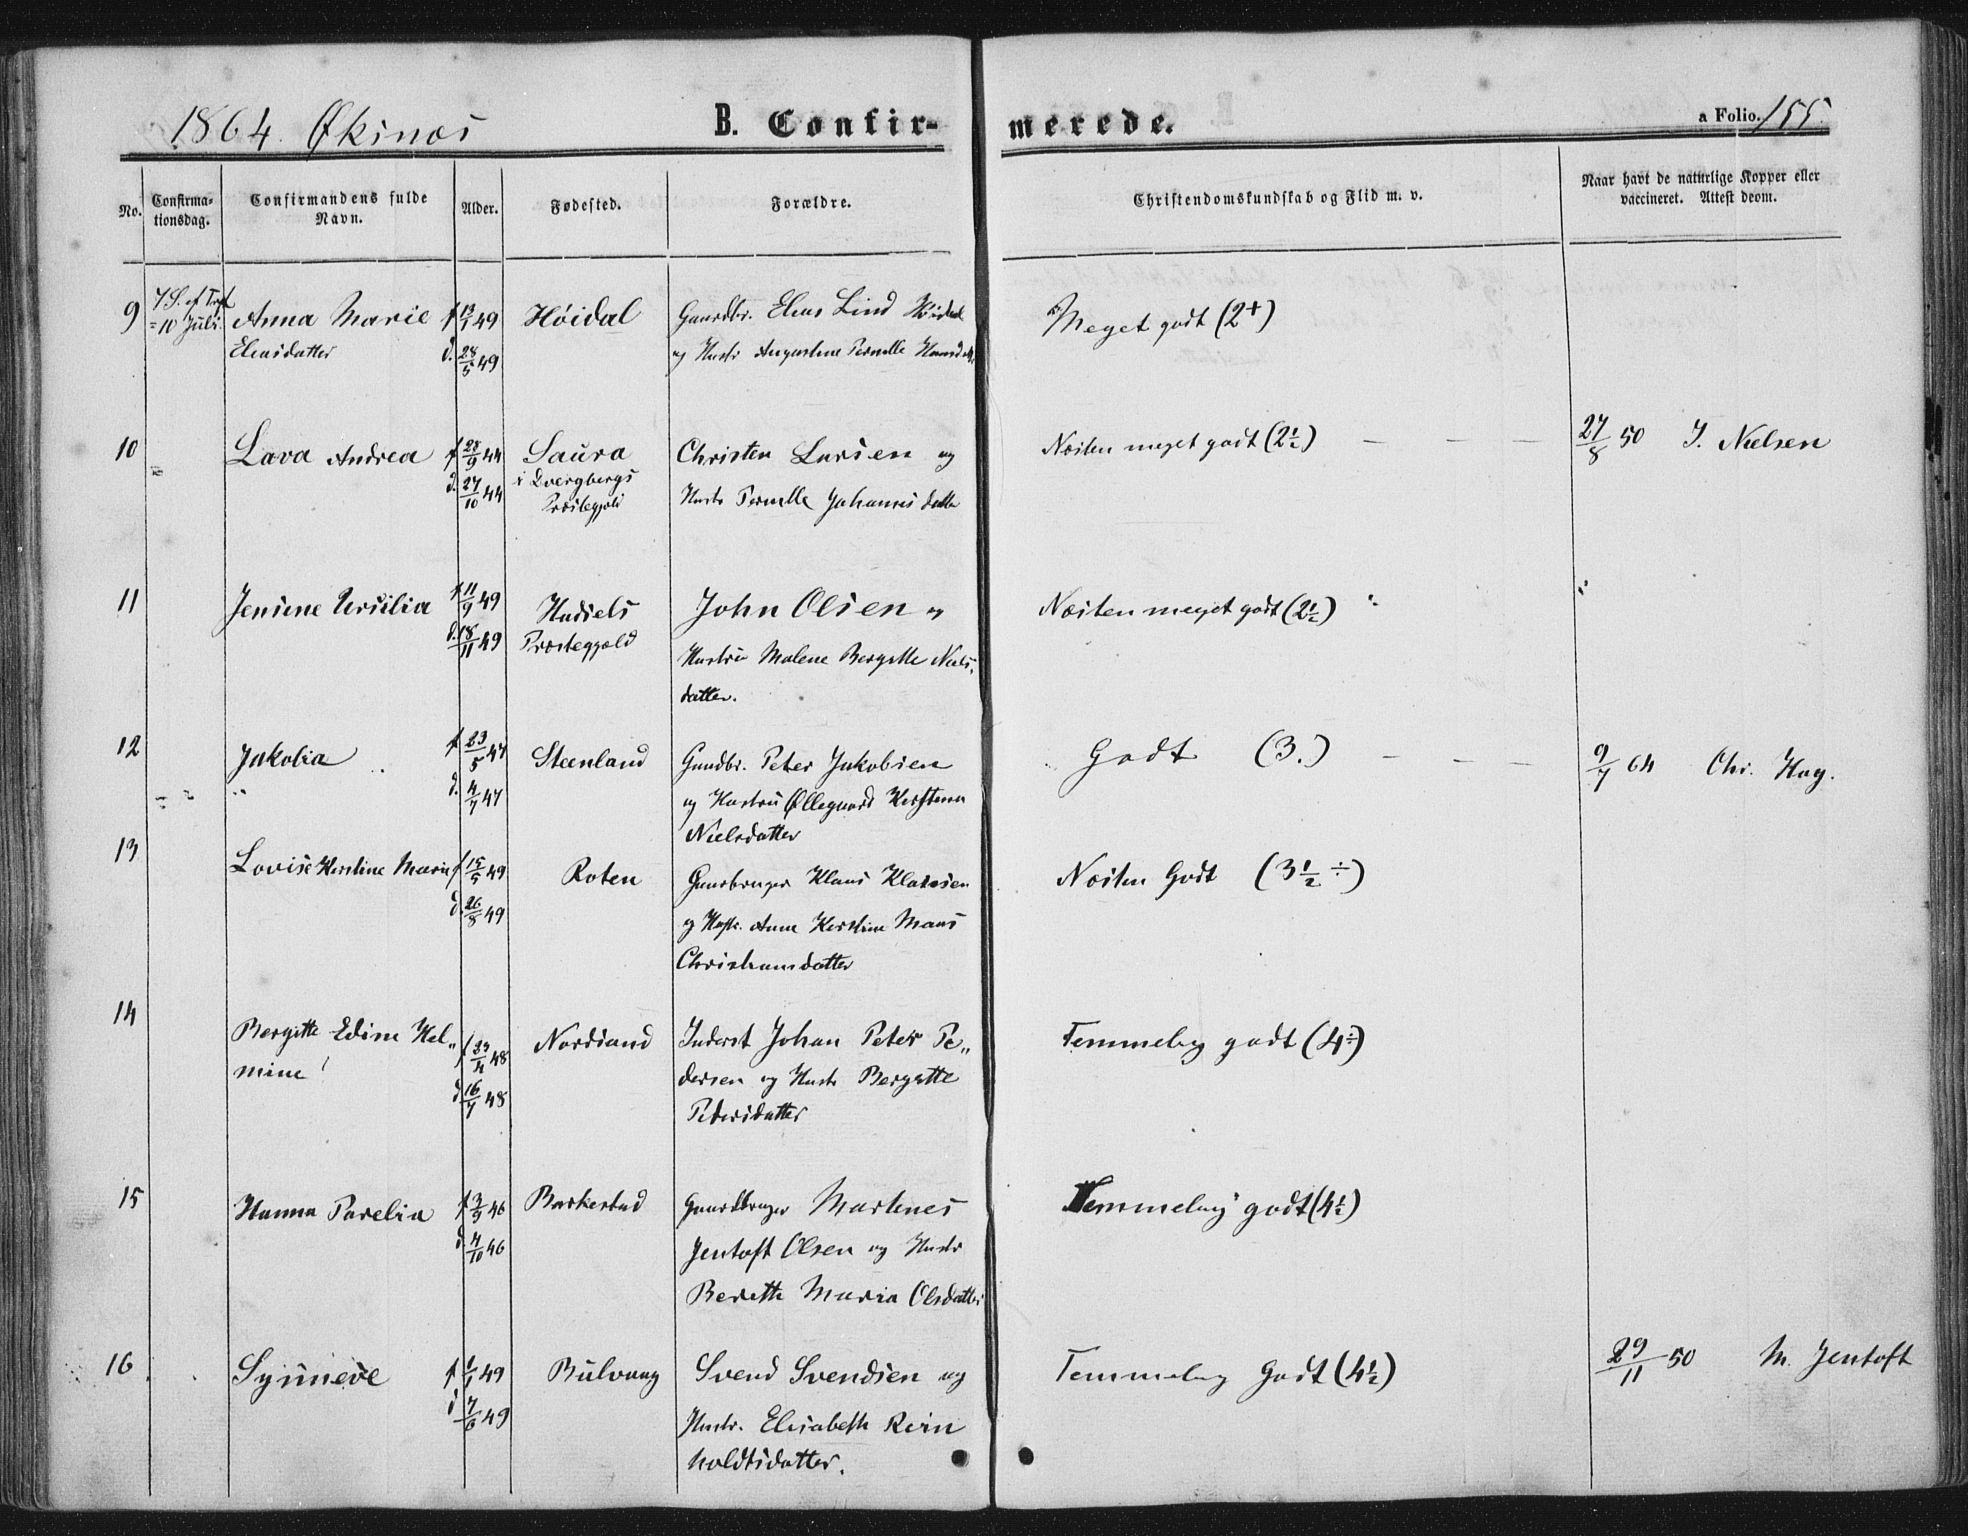 1864. Øksnæs B. Confir- merede. a Folio. 155.
No. Confirma- tionsdag. Confirmandens fulde Navn. Alder. Fødested. Forældre. Christendomskundskab og Flid m. v. Naar havt de naturlige Kopper eller vaccineret. Attest derom.
9 7 S. ef Tref Anna Marie f 13/1 49 Høidal Gaardbr. Elias Lind Høidal Meget godt (2+)
=10 Juli. Eliasdatter d. 28/5 49 og Hustr Augustine Pernille Hansdatt.
10 Lava Andrea f 28/9 44 Saura Christen Larsen og Næsten meget godt (2½) — — — 27/8 50 J. Nielsen
d. 27/10 44 i Dvergbergs Hustr Pernille Johannesdatter
Præstegjeld
11 Jensine Ursilia f 11/9 49 Hadsels John Olsen og Næsten meget godt (2½) "
d. 18/11 49 Præstegjæld Hustru Malene Bergitte Niels-
datter.
12 Jakobia f 23/5 47 Steenland Gaardbr. Peter Jakobsen Godt (3.) — — — 9/7 64 Chr. Hag.
d. 4/7 47 og Hustru Øllegaard Kirstena
Nielsdatter
13 Lovise Kirstine Marie f 15/5 49 Roten Gaardbruger Klaus Klausen Næsten Godt (3½ ÷)
d. 26/8 49 og Hustr. Anna Kirstine Maus
Christiansdatter
14 Bergitte Edine Hel„ f 29/4 48 Nordsand Inderst Johan Peter Pe„ Temmelig godt (4÷)
mine d. 16/7 48 dersen og Hustr Bergitte
Pedersdatter
15 Hanna Parelia f 3/9 46 Barkestad Gaardbruger Martines Temmelig godt (4½)
d. 4/10 46 Jentoft Olsen og Hustr
Berith Maria Olsdatter
16 Synneve f 1/1 49 Bulvaag Svend Svendsen og Temmelig Godt (4½) 29/11 50 M. Jentoft
d 7/6 49 Hustr. Elisabeth Rein
holdtsdatter.